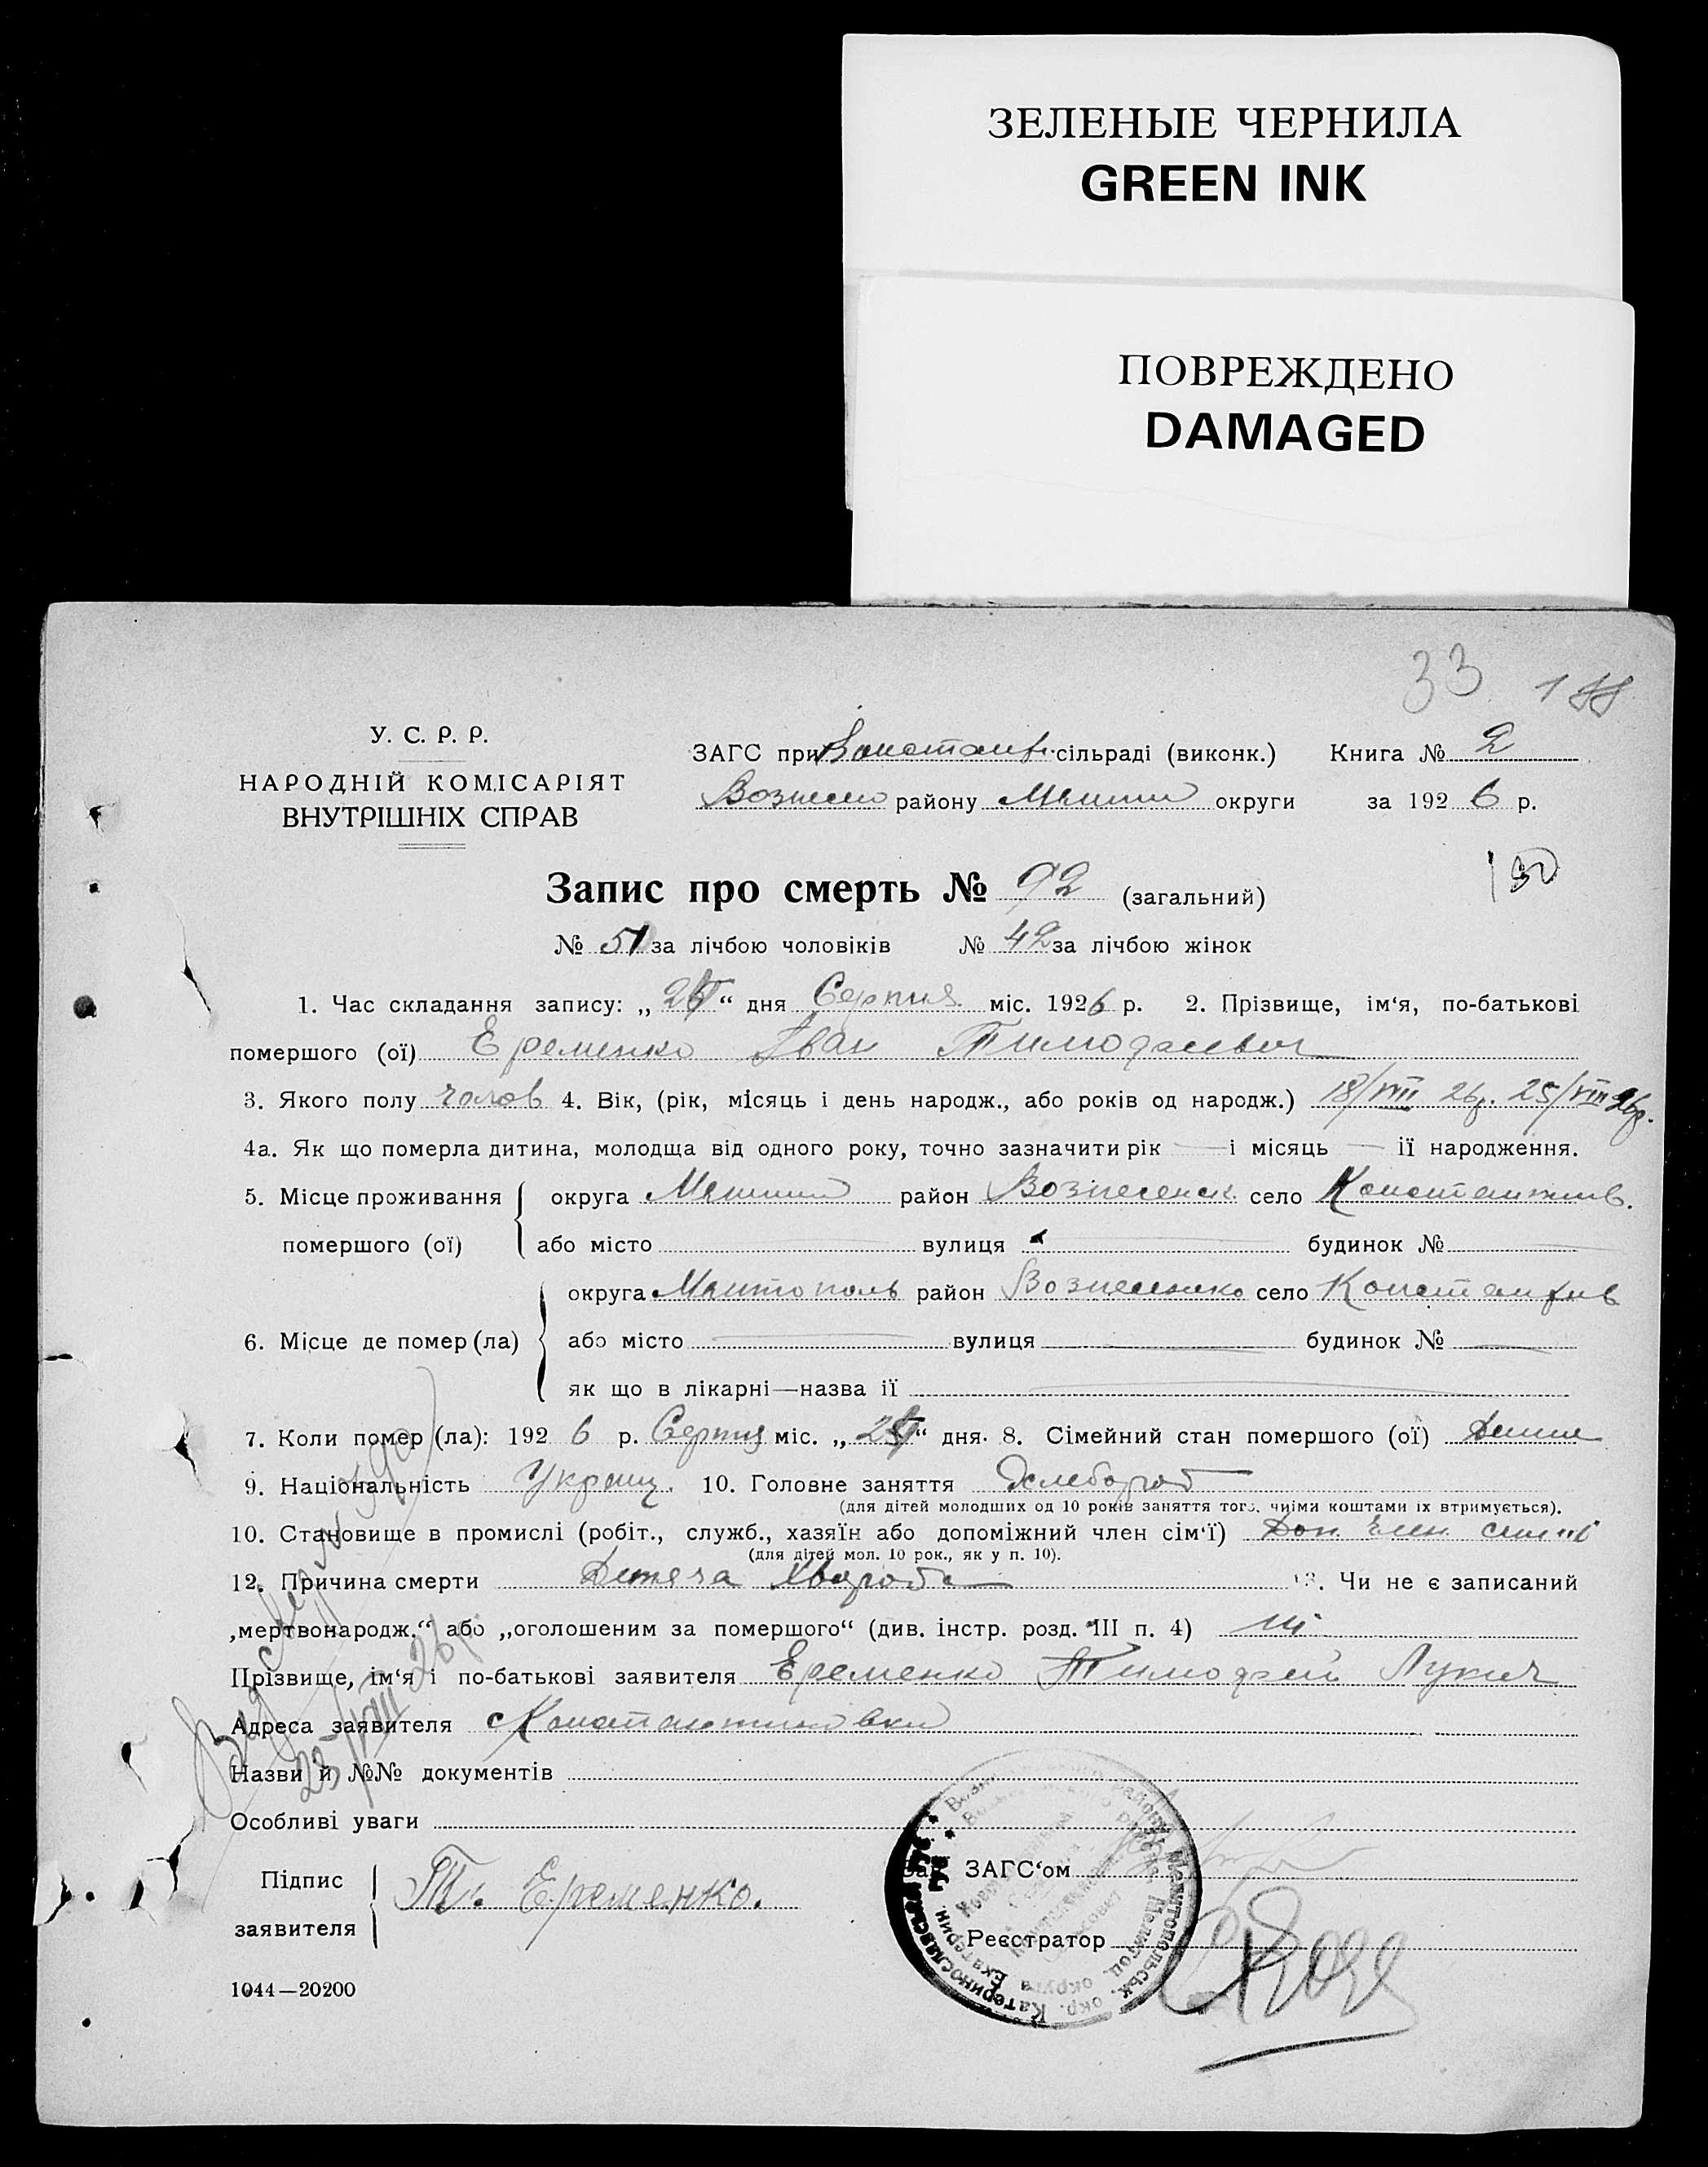 ЗЕЛЕНЫЕ ЧЕРНИЛА
GREEN INK
ПОВРЕЖДЕНО
DAMAGED
33 188
У. С. Р. Р.
НАРОДНІЙ КОМІСАРІЯТ
ВНУТРІШНІХ СПРАВ
ЗАГС при Констант. сільраді (виконк.) Книга № 2
Вознесен району округи за 1926 р.
Запис про смерть № 92 (загальний)
№ 51 за лічбою чоловіків № 42 за лічбою жінок
1. Час складання запису: „ “ дня Серпня міс. 1926 р. 2. Прізвище, ім‘я, по-батькові
помершого (ої) Еременко Іван Тимофаевич
3. Якого полу чолов 4. Вік, (рік, місяць і день народж., або років од народж.) 18/VIII 26р. 25/VIII 26р.
4а. Як що померла дитина, молодща від одного року, точно зазначити рік — і місяць — ії народження.
5. Місце проживання округа район Вознесенск село Константинів.
помершого (ої) або місто вулиця будинок №
округа Мелитополь район Вознесенско село Константинів
6. Місце де помер (ла) або місто вулиця будинок №
як що в лікарні—назва ії
7. Коли помер (ла): 1926 р. Серпня міс. „ “ дня. 8. Сімейний стан помершого (ої)
9. Національність Украін. 10. Головне заняття Хлебороб
(для дітей молодших од 10 років заняття того, чиїми коштами їх втримується).
10. Становище в промислі (робіт., служб., хазяїн або допоміжний член сім‘ї) Доп. член сим'ї
(для дітей мол. 10 рок., як у п. 10).
12. Причина смерти Дитяча хвороба 13. Чи не є записаний
„мертвонародж.“ або „оголошеним за помершого“ (див. інстр. розд. III п. 4) ні
Прізвище, ім‘я і по-батькові заявителя Еременко Тимофей Лукич
Адреса заявителя с Константиновка
Назви й №№ документів
Особливі уваги
Підпис
заявителя Ти. Еременко.
Зав. ЗАГС‘ом
Реєстратор
1044—20200
25/VIII 26р.